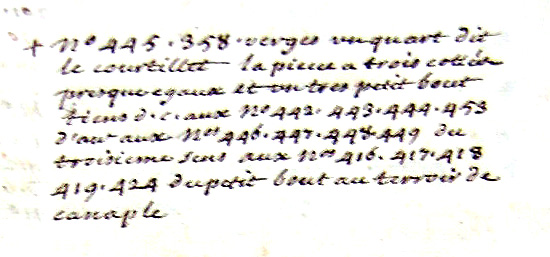 + n° 445 · 358 · verges un quart dit
le courtillet la piece a trois cottés
presque egaux et un tres petit bout
tiens d. c. aux n° 442 · 443 · 444 · 453
d'au.e aux n.os 446 · 447 · 448 · 449 du
troisieme sens aux n.os 416 · 417 · 418
419 · 424 du petit bout au terroir de
canaple